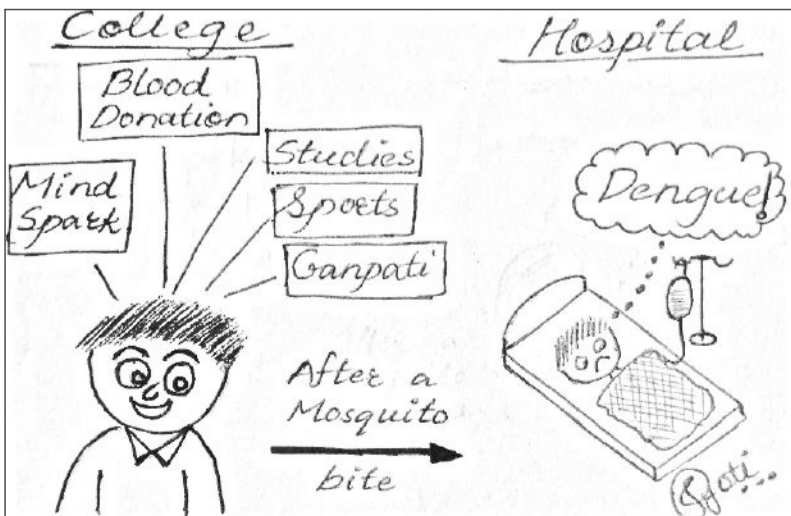 College
Blood
Donation
Mind
Spark
Studies
Sports
Ganpati
After a
Mosquito
bite
Hospital
Dengue!
Jyoti...